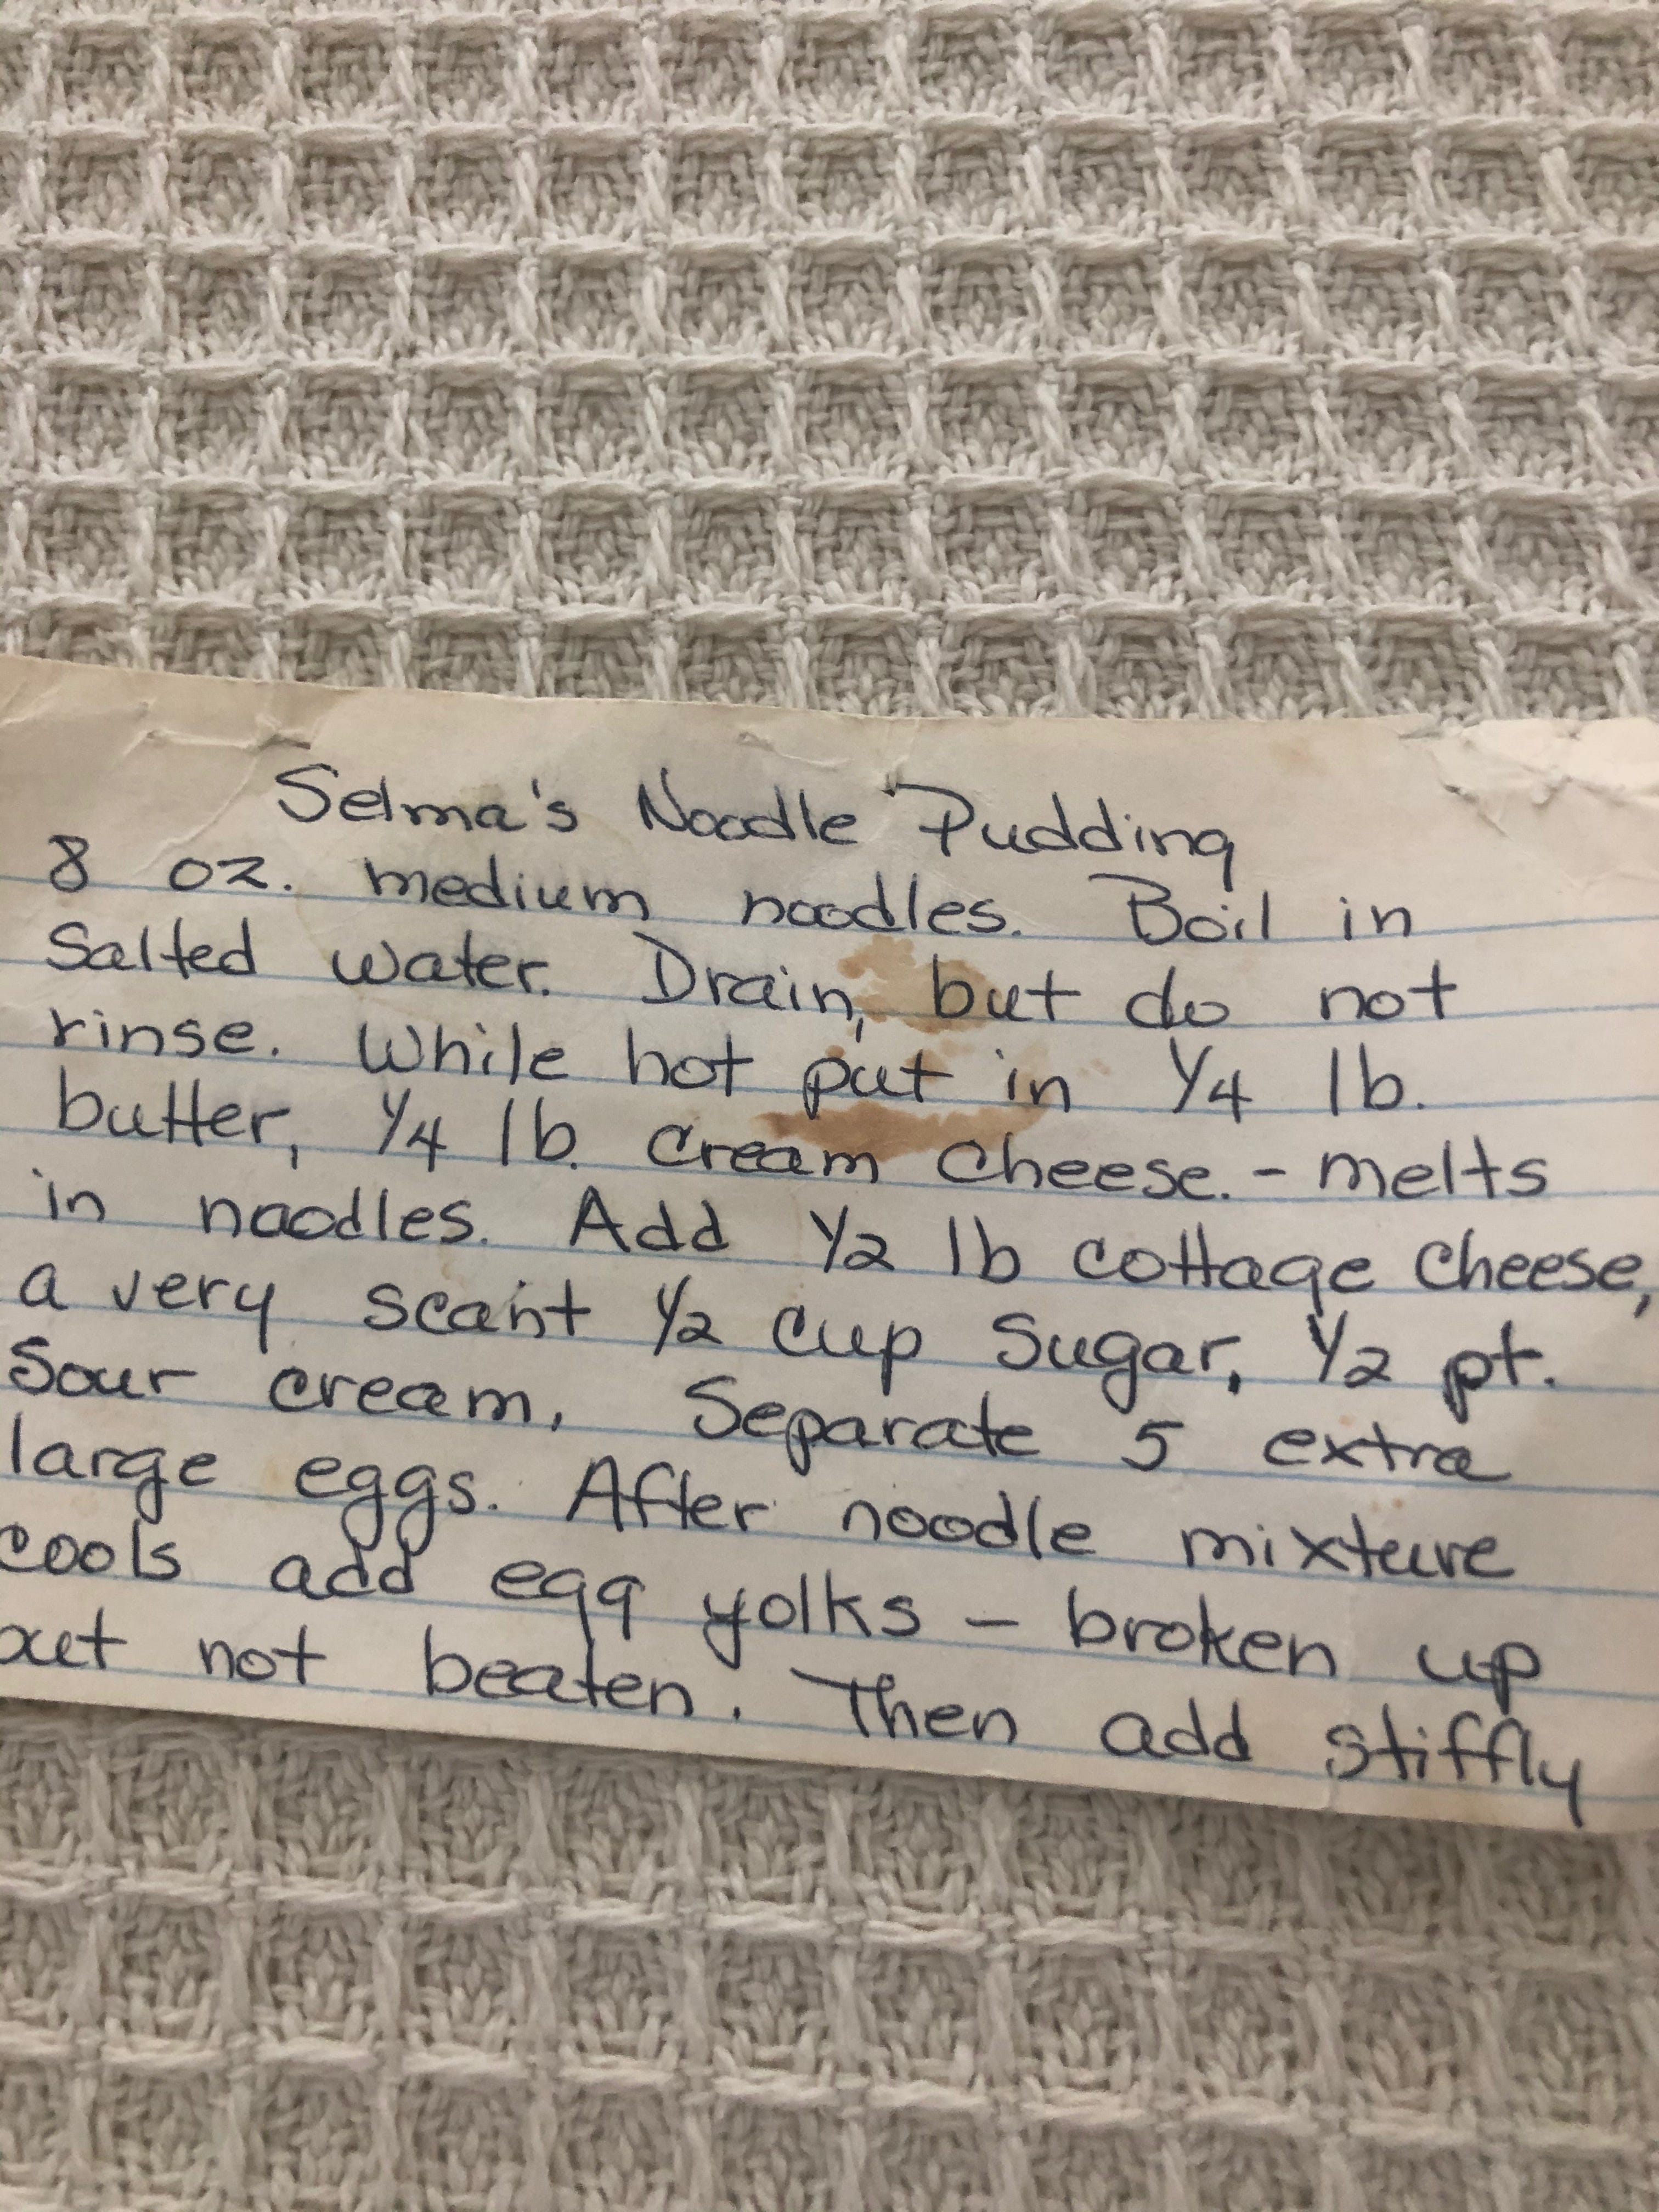 Selma's Noodle Pudding
8 oz. medium noodles. Boil in
Salted water. Drain, but do not
rinse. While hot put in 1/4 lb.
butter, 1/4 lb. cream cheese. - melts
in noodles. Add 1/2 lb cottage cheese,
a very scant 1/2 cup sugar, 1/2 pt.
Sour cream. Separate 5 extra
large eggs. After noodle mixture
cools add egg yolks - broken up
out not beaten. Then add stiffly